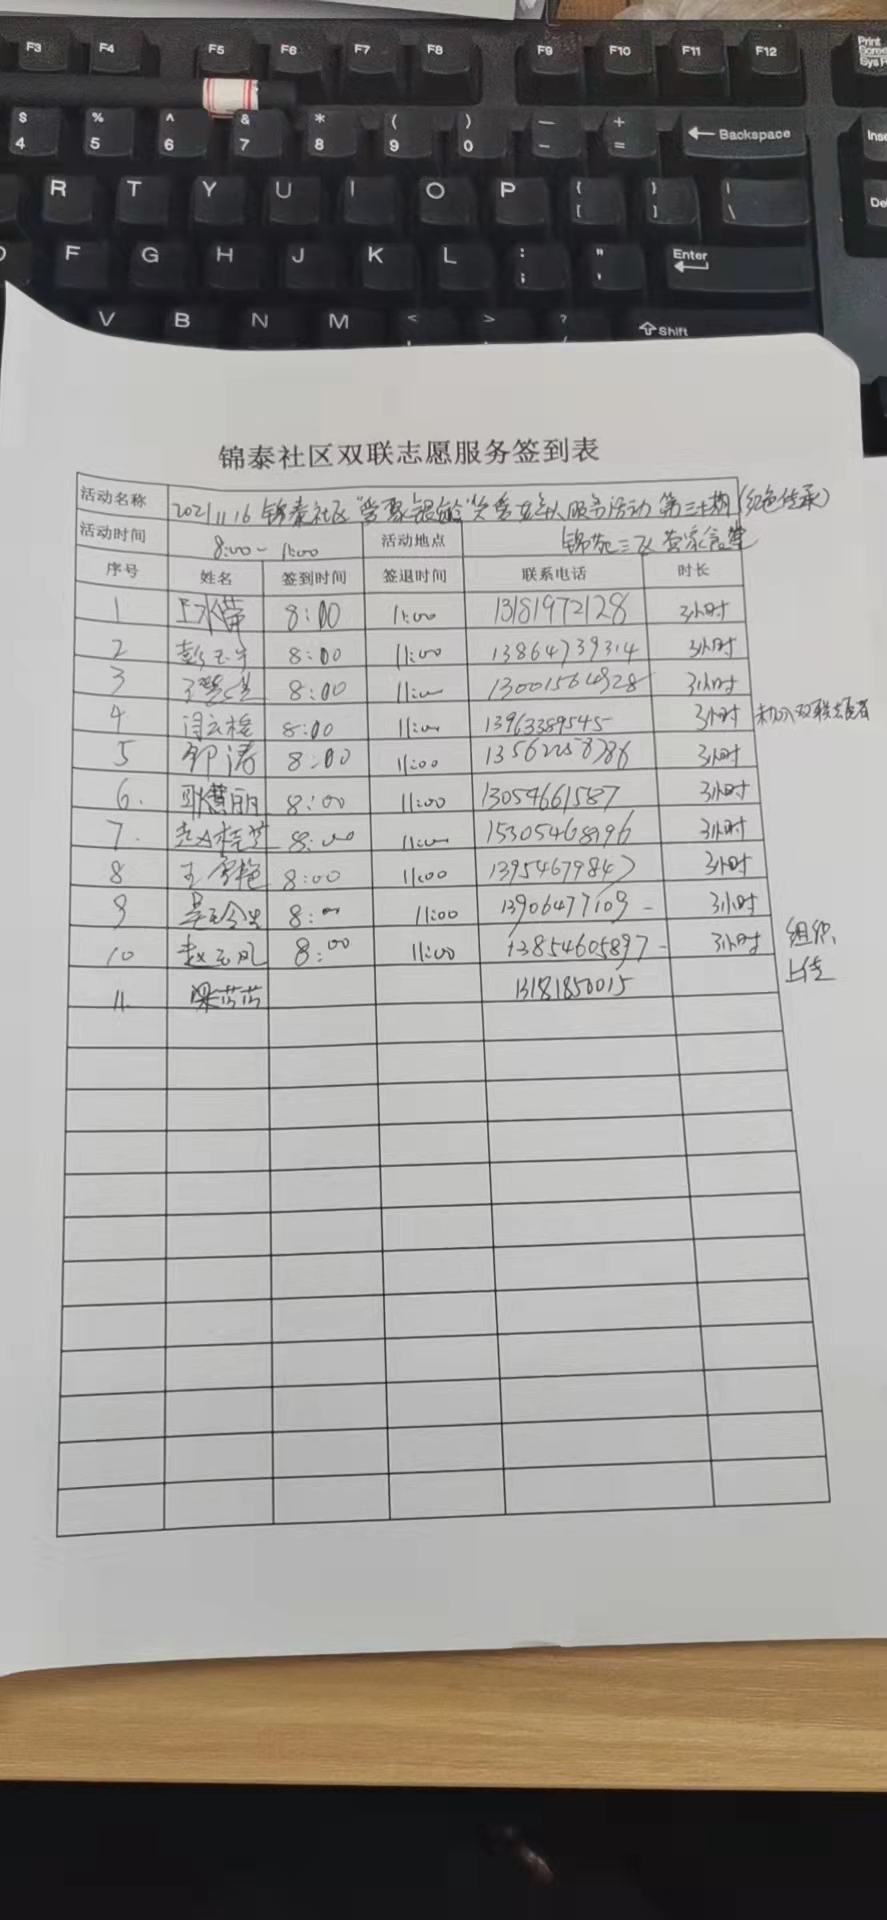 F3 F4 F5 F6 F7 F8 F9 F10 F11 F12 Print
$ % ^ & * ( ) — + ← Backspace Inse
4 5 6 7 8 9 0 - =
R T Y U I O P { } | De
[ ] \
F G H J K L : " Enter
; '
V B N M < > ? Shift
锦泰社区双联志愿服务签到表
活动名称 2021.11.16 锦泰社区"爱聚银龄"关爱老年人服务活动 第三十期(红色传承)
活动时间 8:00-11:00 活动地点 锦苑三区
序号 姓名 签到时间 签退时间 联系电话 时长
1 8:00 11:00 13181972128 3小时
2 8:00 11:00 13864739314 3小时
3 8:00 11:00 13001564928 3小时
4 8:00 11:00 13963389545 3小时 未加入双联志愿者
5 邹涛 8:00 11:00 3小时
6. 耿慧丽 8:00 11:00 13054661587 3小时
7. 赵桂芝 8:00 11:00 3小时
8 王雪艳 8:00 11:00 13954679847 3小时
9 8:00 11:00 13906477109 - 3小时
10 赵云凤 8:00 11:00 13854605897 - 3小时 组织、
上传
11. 梁芸芸 13181850015